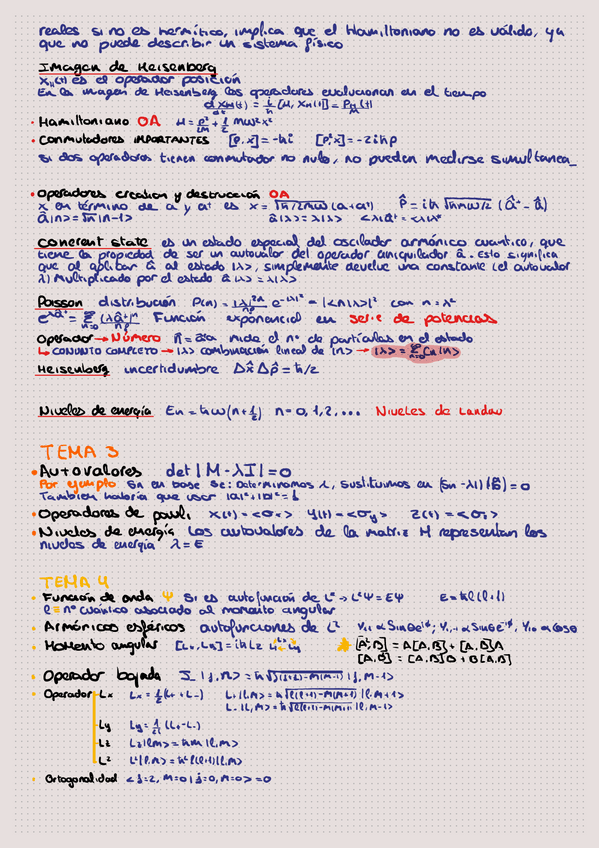 reales si no es hermítico, implica que el Hamiltoniano no es válido, ya
que no puede describir un sistema físico
Imagen de Heisenberg
X_H(t) es el operador posición
En la imagen de Heisenberg los operadores evolucionan en el tiempo
dX_H(t)/dt = i/ħ [H, X_H(t)] = P_H(t)/M
· Hamiltoniano OA H = p²/2M + 1/2 mω²x²
· Conmutadores IMPORTANTES [p,x] = -ħi [p²,x] = -2iħp
si dos operadores tienen conmutador no nulo, no pueden medirse simultanea_
· Operadores creation y destrucción OA
x en término de a y a⁺ es x = √ħ/2mω (a+a⁺) p̂ = iħ √ħmω/2 (â⁺ - â)
â|n> = √n|n-1> â|λ> = λ|λ> <λ|â⁺ = <λ|λ*
Coherent state es un estado especial del oscilador armónico cuantico, que
tiene la propiedad de ser un autovalor del operador aniquilador â. Esto significa
que al aplicar â al estado |λ>, simplemente devuelve una constante (el autovalor
λ) multiplicado por el estado â|λ> = λ|λ>
Poisson distribución P(n) = |λ|²ⁿ/n! e^-|λ|² = |<n|λ>|² con n = λ²
e^λâ⁺ = Σ (λâ⁺)ⁿ/n! Función exponencial en serie de potencias
Operador → Número n̂ = â⁺a mide el nº de partículas en el estado
↳ CONJUNTO COMPLETO → |λ> combinación lineal de |n> → |λ> = Σ Cn|n>
Heisenberg incertidumbre Δx̂ Δp̂ = ħ/2
Niveles de energía En = ħω(n+1/2) n = 0,1,2,... Niveles de Landau
TEMA 3
· Autovalores det|M-λI| = 0
Por ejemplo Sn en base Sz: Determinamos λ, sustituimos en (Sn-λI)(α/β) = 0
Tambien habría que usar |a|²+|b|² = 1
· Operadores de pauli x(t) = <σx> y(t) = <σy> z(t) = <σz>
· Niveles de energía Los autovalores de la matriz M representan los
niveles de energía λ = E
TEMA 4
· Función de onda Ψ Si es autofunción de L² → L²Ψ = EΨ E = ħl(l+1)
l = nº cuánico asociado al momento angular
· Armónicos esféricos autofunciones de L² Y₁₁ α Sinθe^iφ; Y₁,₋₁ α Sinθe^-iφ, Y₁₀ α cosθ
· Momento angular [Lx,Ly] = iħLz [A²,B] = A[A,B] + [A,B]A
[A,B] = [A,B]B + B[A,B]
· Operador bajada J_|j,m> = ħ√j(j+1)-m(m-1) |j,m-1>
· Operador Lx Lx = 1/2(L₊+L₋) L₊|l,m> = ħ√l(l+1)-m(m+1) |l,m+1>
L₋|l,m> = ħ√l(l+1)-m(m+1) |l,m-1>
Ly Ly = 1/2i (L₊-L₋)
Lz Lz|l,m> = ħm|l,m>
L² L²|l,m> = ħ²l(l+1)|l,m>
· Ortogonalidad <j=2, m=0|j=0, m=0> = 0